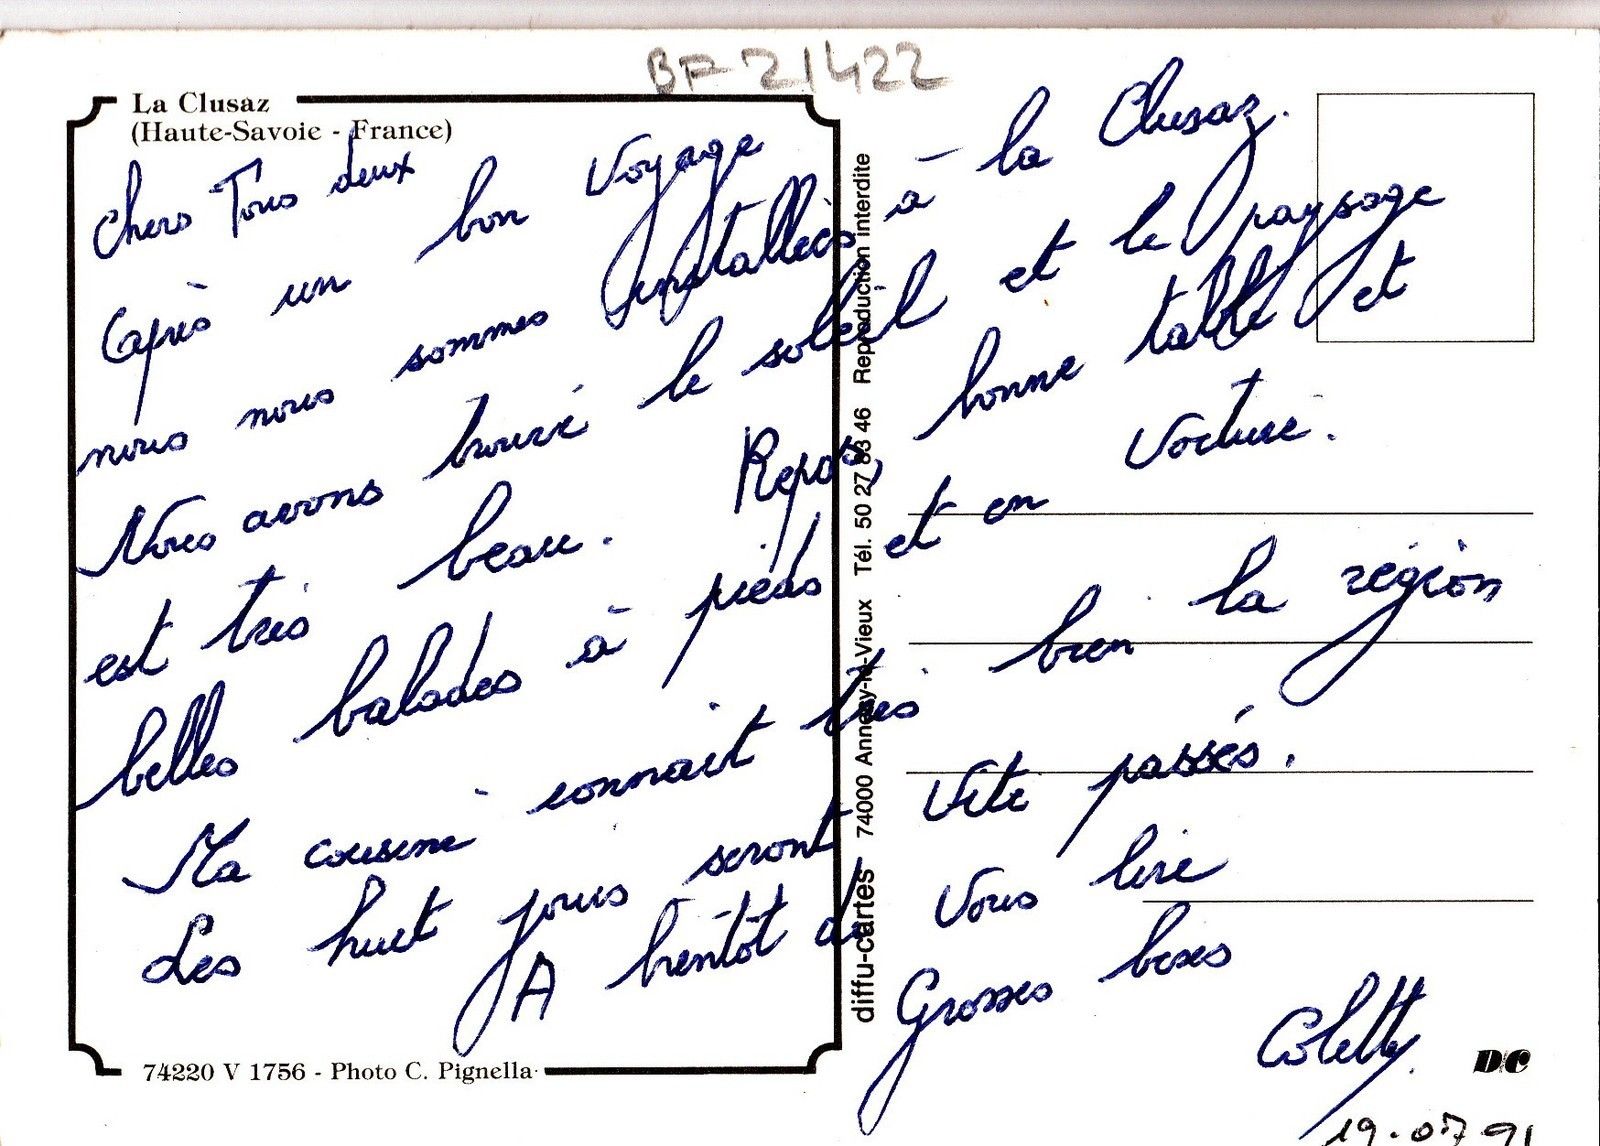 BF 21422
La Clusaz
(Haute-Savoie - France)
Chers Tous deux
Après un bon Voyage
nous nous sommes installées à la Clusaz.
Nous avons trouvé le soleil et le paysage
est très beau. Repos, bonne table et
belles balades à pieds et en Voiture.
Ma cousine connait très bien la région
Les huit jours seront Vite passés.
A bientôt de Vous lire
Grosses bises
Colette
19-07 91
74220 V 1756 - Photo C. Pignella
diffu-cartes 74000 Annecy-le-Vieux Tél. 50 27 83 46 Reproduction interdite
D/C